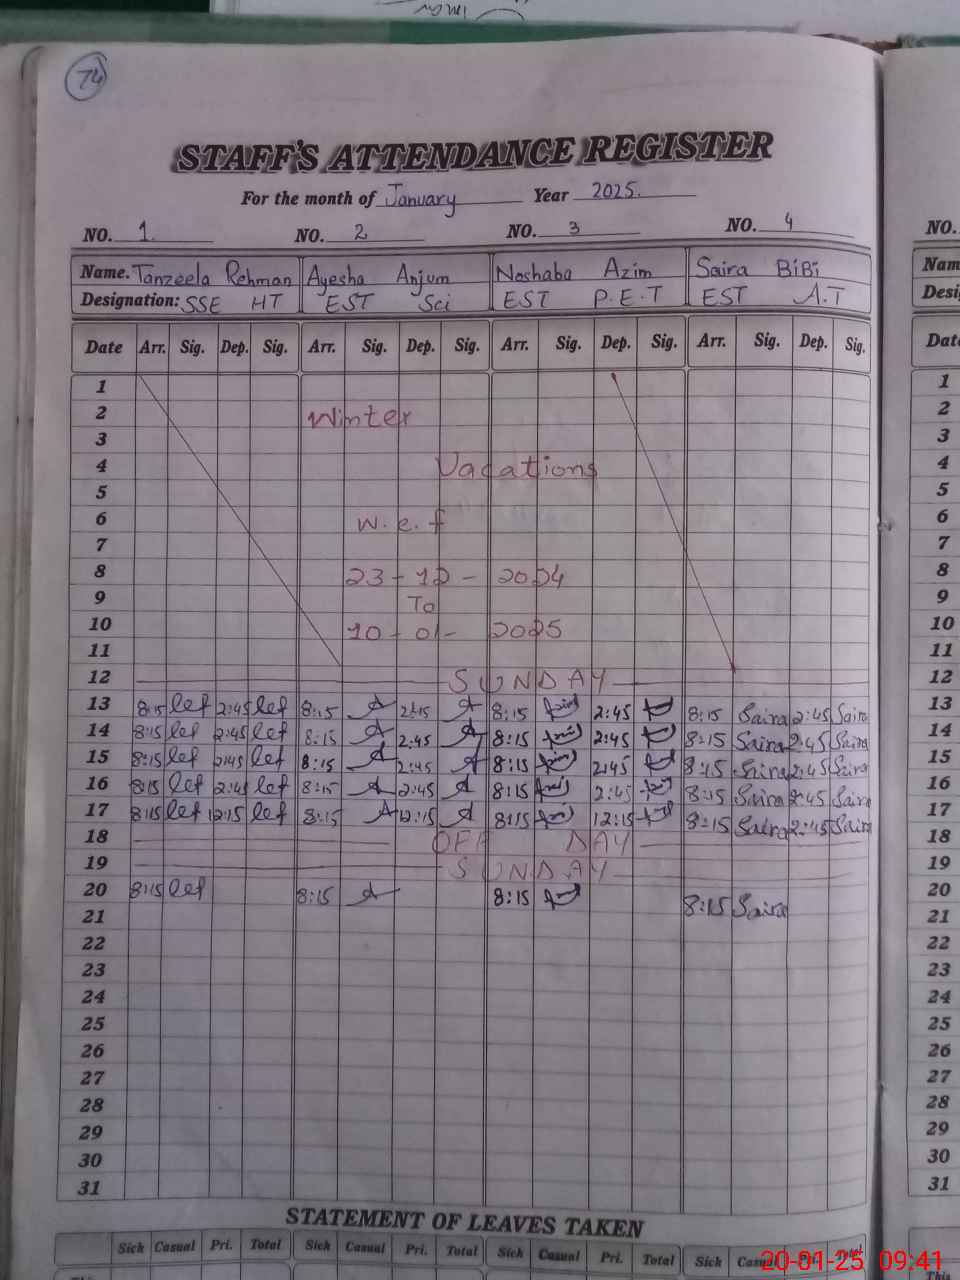 74
STAFF'S ATTENDANCE REGISTER
For the month of January Year 2025.
NO. 1. NO. 2 NO. 3 NO. 4 NO.
Name. Tanzeela Rehman Ayesha Anjum Noshaba Azim Saira BiBi Nam
Designation: SSE HT EST Sci EST P.E.T EST A.T Desi
Date Arr. Sig. Dep. Sig. Arr. Sig. Dep. Sig. Arr. Sig. Dep. Sig. Arr. Sig. Dep. Sig. Dat
1 1
2 Winter 2
3 3
4 Vacations 4
5 5
6 w.e.f 6
7 7
8 23-12-2024 8
9 To 9
10 10-01-2025 10
11 11
12 SUNDAY 12
13 8:15 2:45 8:15 2:45 8:15 2:45 8:15 Saira 2:45 Saira 13
14 8:15 2:45 8:15 2:45 8:15 2:45 8:15 Saira 2:45 Saira 14
15 8:15 2:45 8:15 2:45 8:15 2:45 8:15 Saira 2:45 Saira 15
16 8:15 2:45 8:15 2:45 8:15 2:45 8:15 Saira 2:45 Saira 16
17 8:15 12:15 8:15 12:15 8:15 12:15 8:15 Saira 2:45 Saira 17
18 OFF DAY 18
19 SUNDAY 19
20 8:15 8:15 8:15 8:15 Saira 20
21 21
22 22
23 23
24 24
25 25
26 26
27 27
28 28
29 29
30 30
31 31
STATEMENT OF LEAVES TAKEN
Sick Casual Pri. Total Sick Casual Pri. Total Sick Casual Pri. Total Sick Casual Pri. Total
This This
20-01-25 09:41